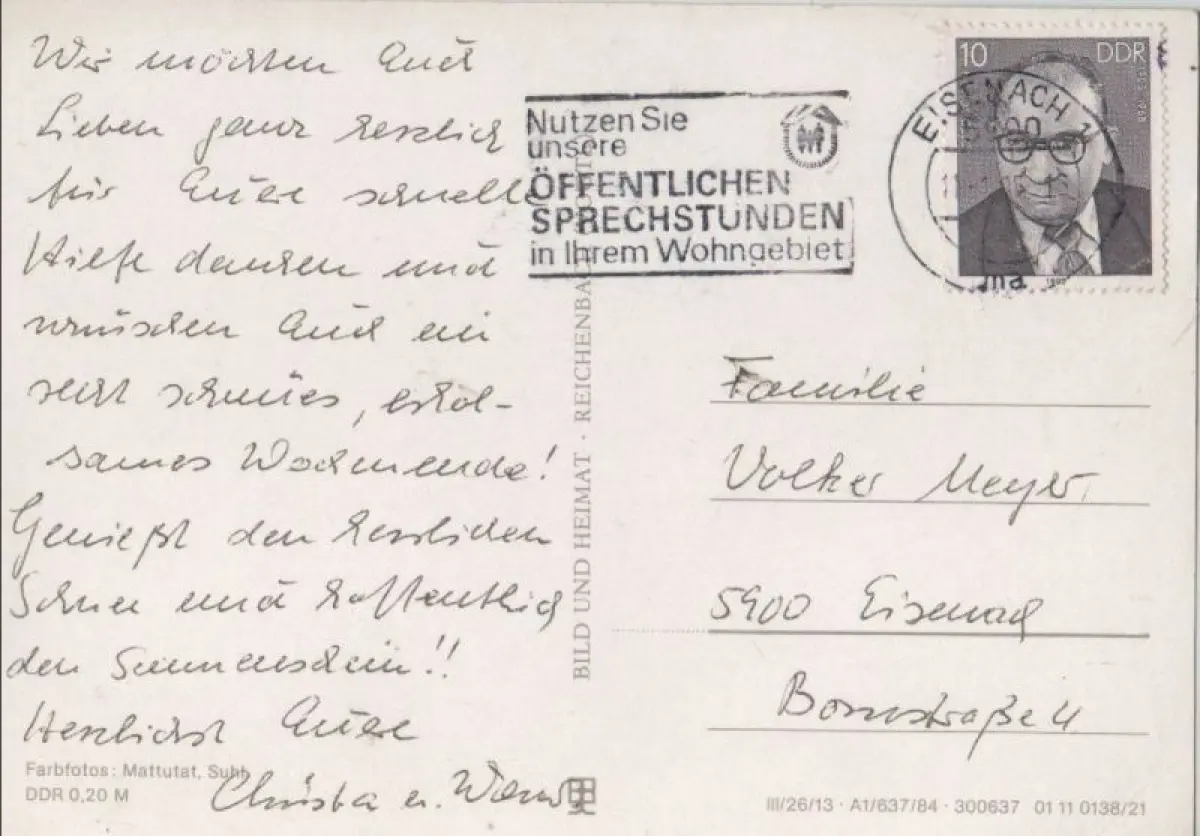 Wir möchten Euch
Lieben ganz herzlich
für Eure schnelle
Hilfe danken und
wünschen Euch ein
recht schönes, erhol-
sames Wochenende!
Genießt den herrlichen
Schnee und hoffentlich
den Sonnenschein!!
Herzlichst Eure
Christa u.
Farbfotos: Mattutat, Suhl
DDR 0,20 M
BILD UND HEIMAT · REICHENBACH
Nutzen Sie
unsere
ÖFFENTLICHEN
SPRECHSTUNDEN
in Ihrem Wohngebiet
EISENACH 1
5900
ma
10 DDR
Familie
Volker Meyer
5900 Eisenach
Bornstraße 4
III/26/13 · A1/637/84 · 300637 01 11 0138/21